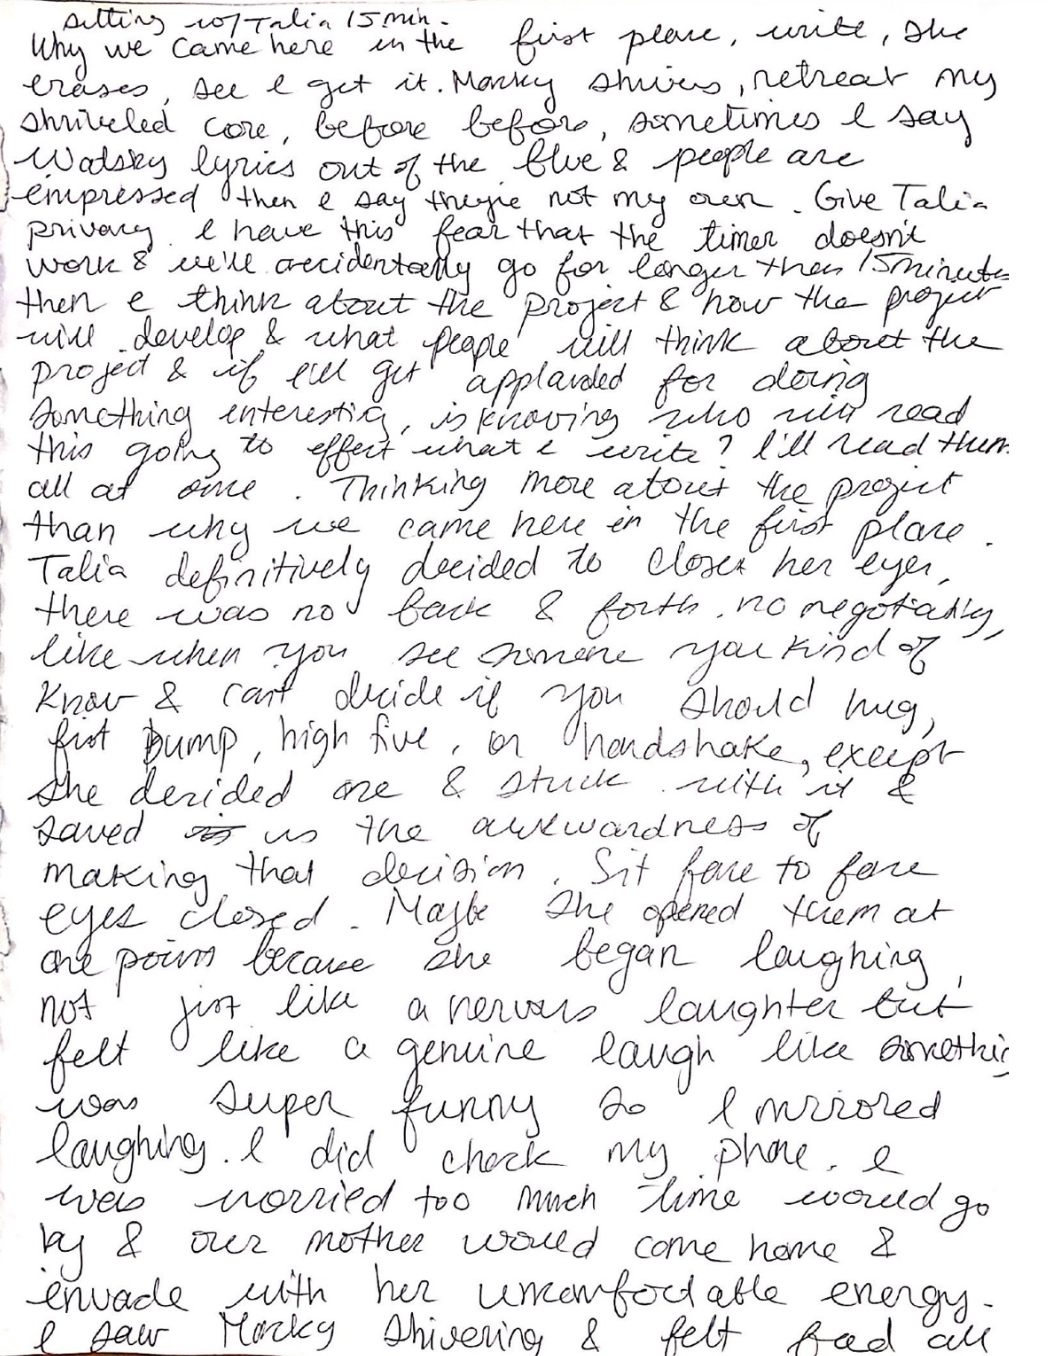 sitting w/ Talia 15 min.
Why we came here in the first place, write, she
erases, see I get it. Marky shivers, retreat my
shriveled core, before before, sometimes I say
Watsky lyrics out of the blue & people are
impressed then I say they're not my own. Give Talia
privacy. I have this fear that the timer doesn't
work & we'll accidentally go for longer then 15 minutes
then I think about the project & how the project
will develop & what people will think about the
project & if I'll get applauded for doing
something interesting, is knowing who will read
this going to effect what I write? I'll read them
all at once. Thinking more about the project
than why we came here in the first place.
Talia definitively decided to closer her eyes,
there was no back & forth, no negotiating,
like when you see someone you kind of
know & can't decide if you should hug,
fist bump, high five, or handshake, except
she decided one & stuck with it &
saved us the awkwardness of
making that decision. Sit face to face
eyes closed. Maybe she opened them at
one point because she began laughing,
not just like a nervous laughter but
felt like a genuine laugh like something
was super funny so I mirrored
laughing. I did check my phone. I
was worried too much time would go
by & our mother would come home &
invade with her uncomfortable energy.
I saw Marky shivering & felt bad all